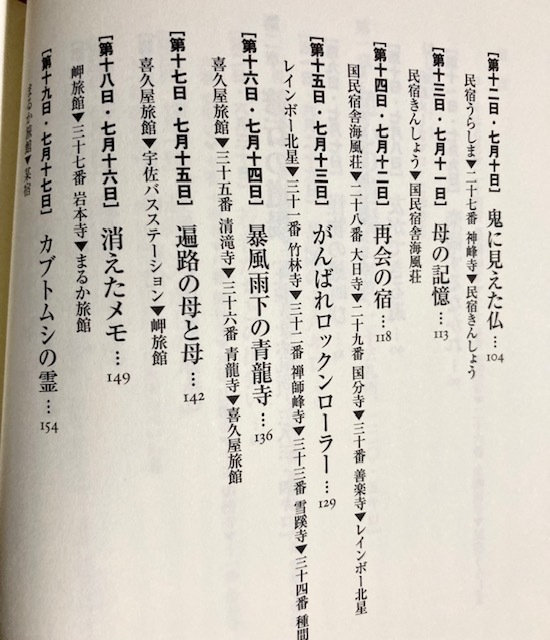 ［第十二日・七月十日］ 鬼に見えた仏 … 104
民宿うらしま▼二十七番 神峰寺▼民宿きんしょう
［第十三日・七月十一日］ 母の記憶 … 113
民宿きんしょう▼国民宿舎海風荘
［第十四日・七月十二日］ 再会の宿 … 118
国民宿舎海風荘▼二十八番 大日寺▼二十九番 国分寺▼三十番 善楽寺▼レインボー北星
［第十五日・七月十三日］ がんばれロックンローラー … 129
レインボー北星▼三十一番 竹林寺▼三十二番 禅師峰寺▼三十三番 雪蹊寺▼三十四番 種間
［第十六日・七月十四日］ 暴風雨下の青龍寺 … 136
喜久屋旅館▼三十五番 清滝寺▼三十六番 青龍寺▼喜久屋旅館
［第十七日・七月十五日］ 遍路の母と母 … 142
喜久屋旅館▼宇佐バスステーション▼岬旅館
［第十八日・七月十六日］ 消えたメモ … 149
岬旅館▼三十七番 岩本寺▼まるか旅館
［第十九日・七月十七日］ カブトムシの霊 … 154
まるか旅館▼某宿